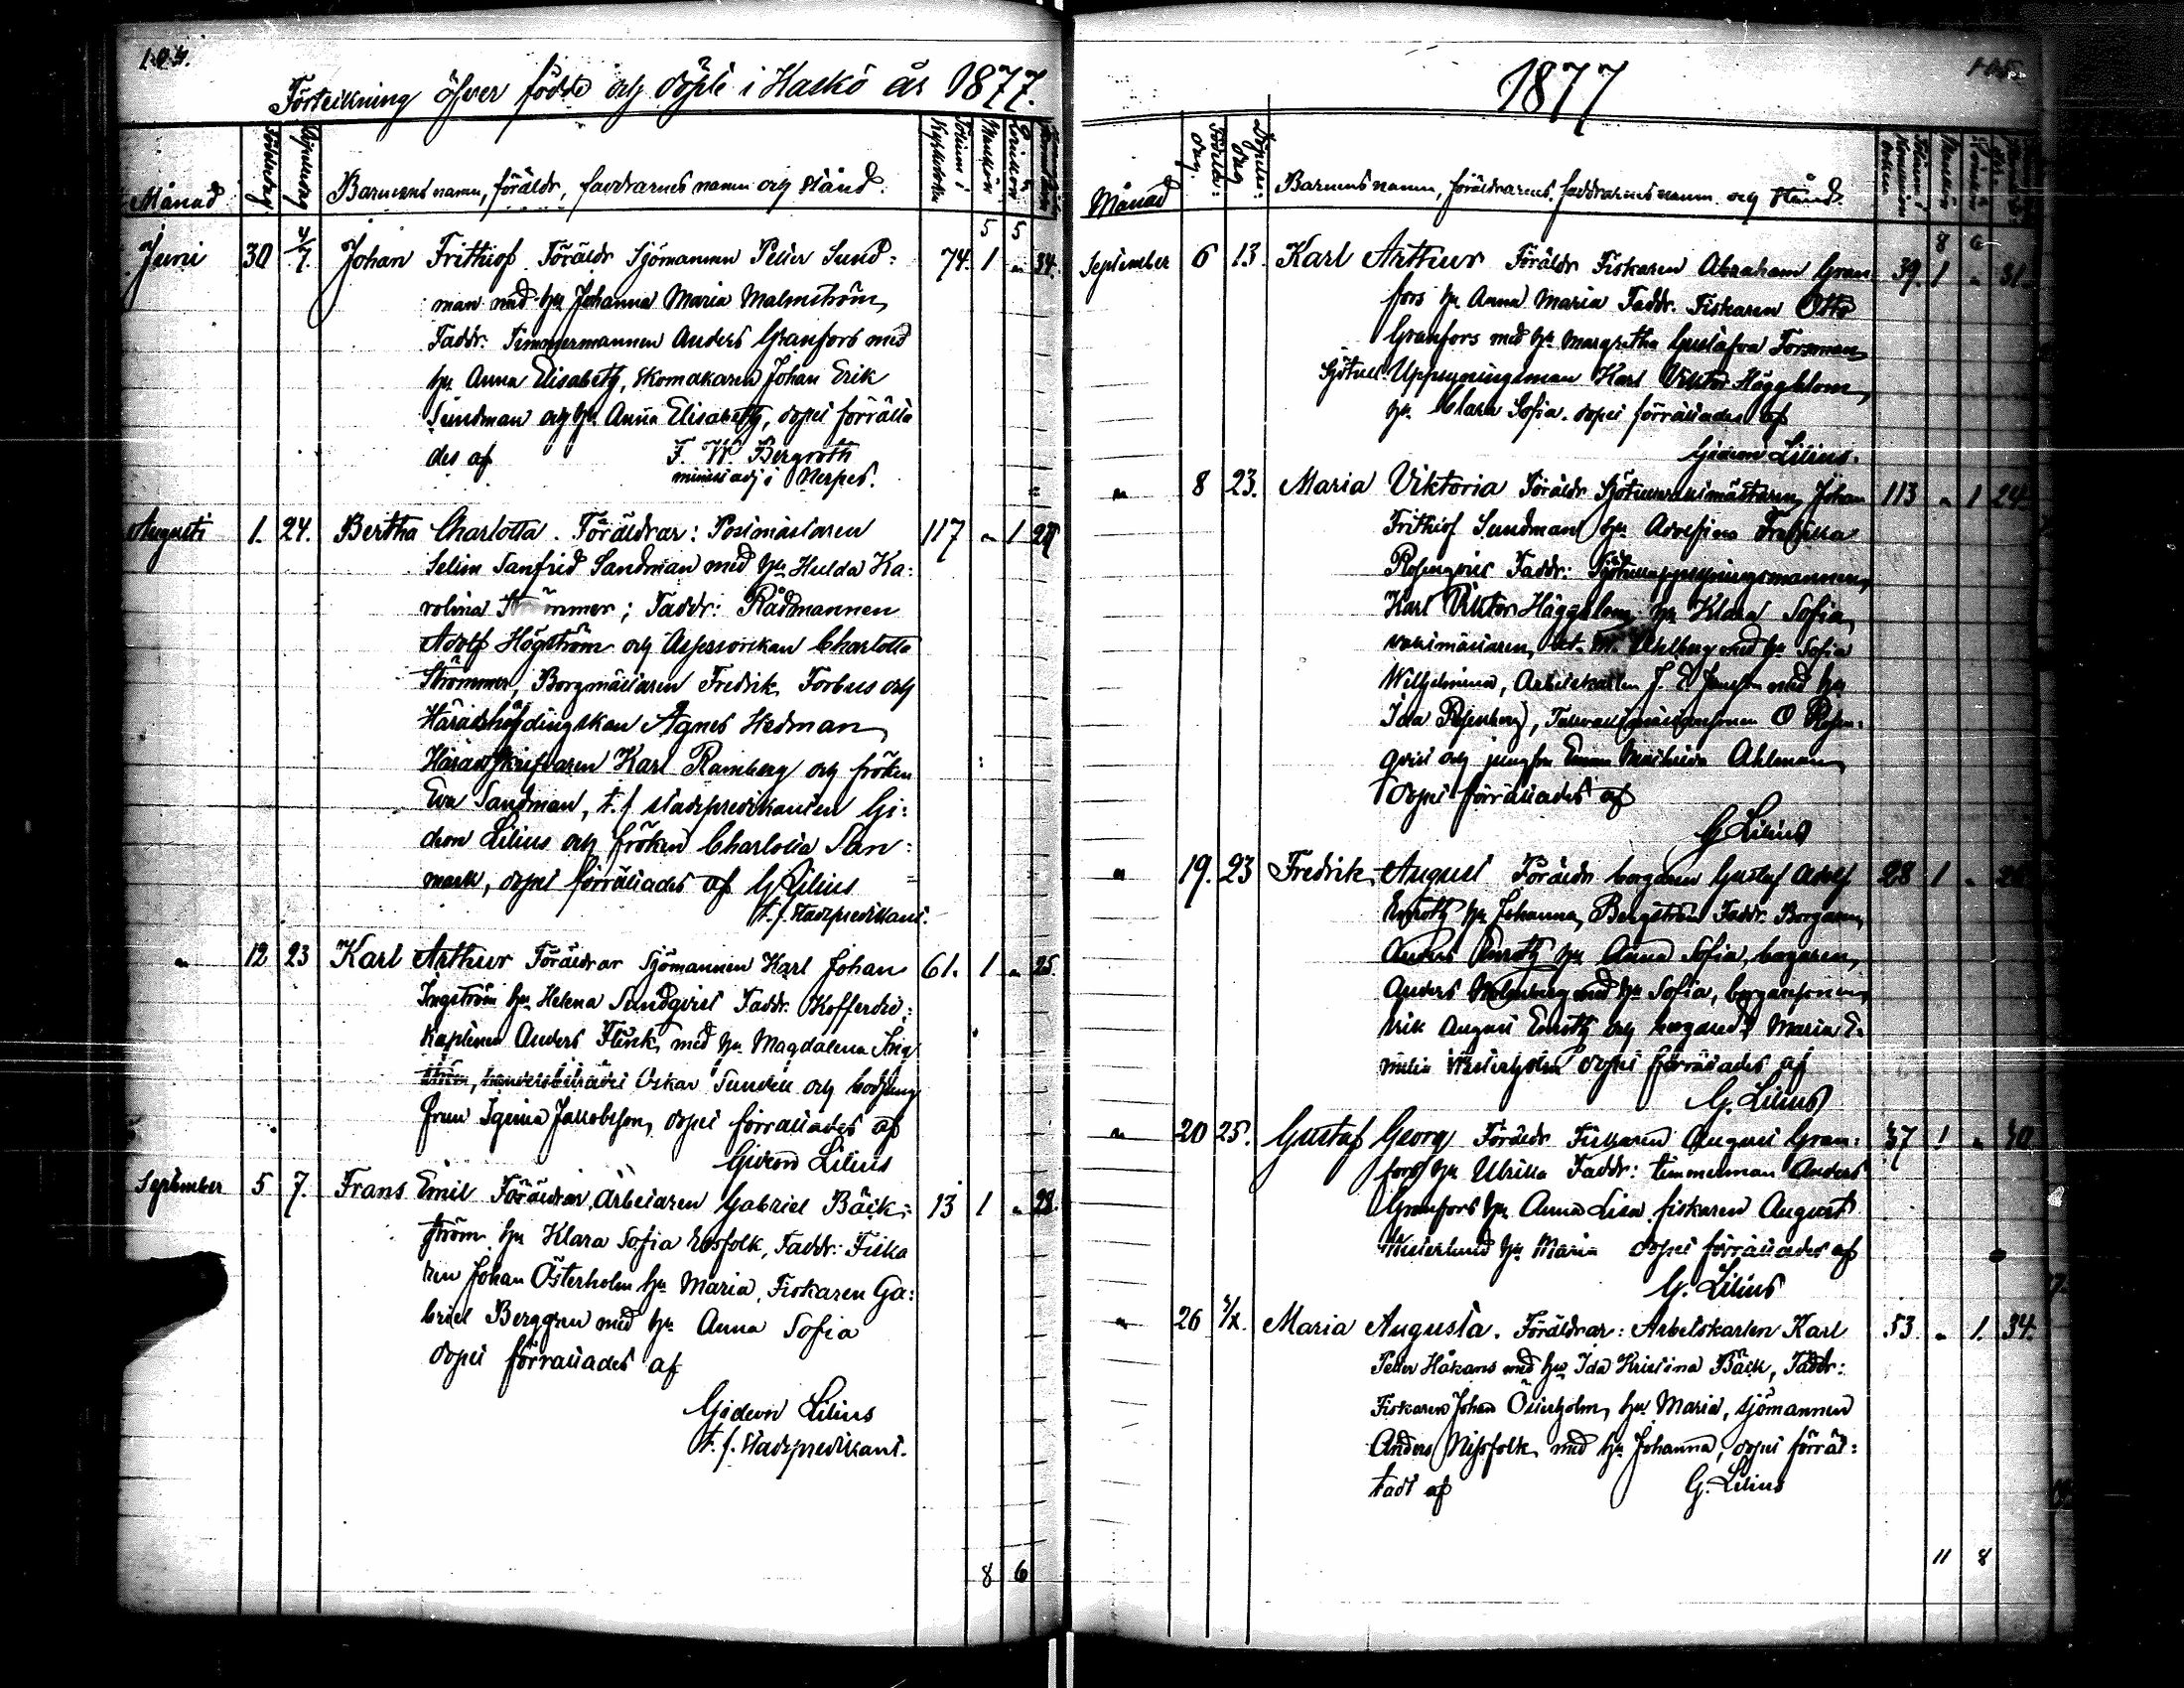 104.
Förteckning öfver födde och döpte i Kaskö år 1877.
Månad
Födelsedag
Döpelsedag
Barnens namn, föräldr, faddrarnes namn och stånd.
5 5
Juni 30 4/7. Johan Frithiof Föräldr Sjömannen Petter Sund- 74. 1 " 34.
man med hu Johanna Maria Malmström,
Faddr: Timmermannen Anders Granfors med
hu Anna Elisabeth, skomakaren Johan Erik
Sundman och hu Anna Elisabeth, dopet förrätta
des af F. W. Bergroth
minist adj i Nerpes.
Augusti 1. 24. Bertha Charlotta. Föräldrar: Postmästaren 117 " 1 24
Selim Sanfrid Sandman med hu Hulda Ka:
rolina Strömmer; Faddr: Rådmannen
Adolf Högström och Assessorskan Charlotta
Strömmer, Borgmästaren Fredrik Forbus och
Häradshöfdingskan Agnes Hedman,
Häradsskrifvaren Karl Ramberg och fröken
Eva Sandman, t. f. stadspredikanten Gi:
deon Lilius och fröken Charlotta San:
mark, dopet förrättades af G Lilius
t. f. stadspredikant.
" 12 23 Karl Arthur Föräldrar Sjömannen Karl Johan 61. 1 " 25
Ingström hu Helena Sundqvist Faddr. Kofferdi:
kaptenen Anders Flinck med hu Magdalena Ing
ström, handelsbiträdet Oskar Sundell och bodjung
frun Jakobsson, dopet förrättades af
Gideon Lilius
September 5 7. Frans Emil Föräldrar Arbetaren Gabriel Bäck: 13 1 " 28.
ström hu Klara Sofia Rosfolk, Faddr: Fiska
ren Johan Österholm hu Maria, Fiskaren Ga:
briel Berggren med hu Anna Sofia
dopet förrättades af
Gideon Lilius
t. f. Stadspredikant.
8 6
1877
105.
Månad
Födelse-
dag.
Döpelse-
dag
Barnens namn, föräldrarnes, faddrarnes namn och stånd.
8 6
September 6 13. Karl Arthur Föräldr Fiskaren Abraham Gran- 39. 1 " 31.
fors hu Anna Maria Faddr. Fiskaren Otto
Granfors med hu Margretha Gustafva Forsman,
Sjötull Uppsyningsman Karl Viktor Häggblom,
hu Clara Sofia. dopet förrättades af
Gideon Lilius.
" 8 23. Maria Viktoria Föräldr Sjötullvaktmästaren Johan 113 " 1 24
Frithiof Sundman hu Adolfina Fredrika
Rosenqvist Faddr: Sjötulluppsyningsmannen,
Karl Viktor Häggblom hu Klara Sofia,
vaktmästaren, Ahlberg med hu Sofia
Wilhelmina, Arbetskarlen J. E. Jansson med hu
Ida Rosenberg, O Rosen-
qvist och jungfru Emma Mathilda Ahlman,
dopet förrättades af
G Lilius
" 19. 23 Fredrik August Föräldr borgaren Gustaf Adolf 28 1 "
Enroth hu Johanna Bergström Faddr. Borgaren,
Anders Enroth hu Anna Sofia, borgaren,
Anders Holmberg med hu Sofia, borgaresonen,
Erik August Enroth och borgared. Maria E-
milia Westerholm dopet förrättades af
G. Lilius
" 20 25. Gustaf Georg Föräldr Fiskaren August Gran: 37 1 " 40
fors hu Ulrika Faddr: timmerman Anders
Granfors hu Anna Lisa, fiskaren August
Westerlund hu Maria dopet förrättades af
G. Lilius
" 26 Maria Augusta. Föräldrar: Arbetskarlen Karl 53. " 1. 34.
Petter Håkans med hu Ida Kristina Bäck, Faddr:
Fiskaren Johan Österholm, hu Maria, sjömannen
Anders Nissfolk, med hu Johanna, dopet förrät:
tadt af G. Lilius
11 8